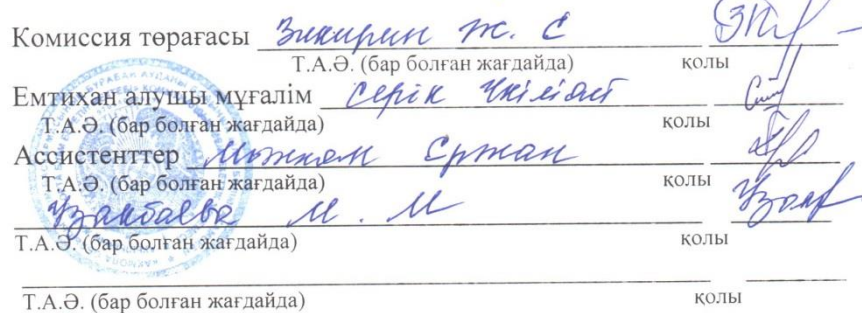 Комиссия төрағасы Зикирин Ж. С
Т.А.Ә. (бар болған жағдайда) қолы
Емтихан алушы мұғалім Серік
Т.А.Ә. (бар болған жағдайда) қолы
Ассистенттер Сржан
Т.А.Ә. (бар болған жағдайда) қолы
Узакбаева М. М
Т.А.Ә. (бар болған жағдайда) қолы
Т.А.Ә. (бар болған жағдайда) қолы